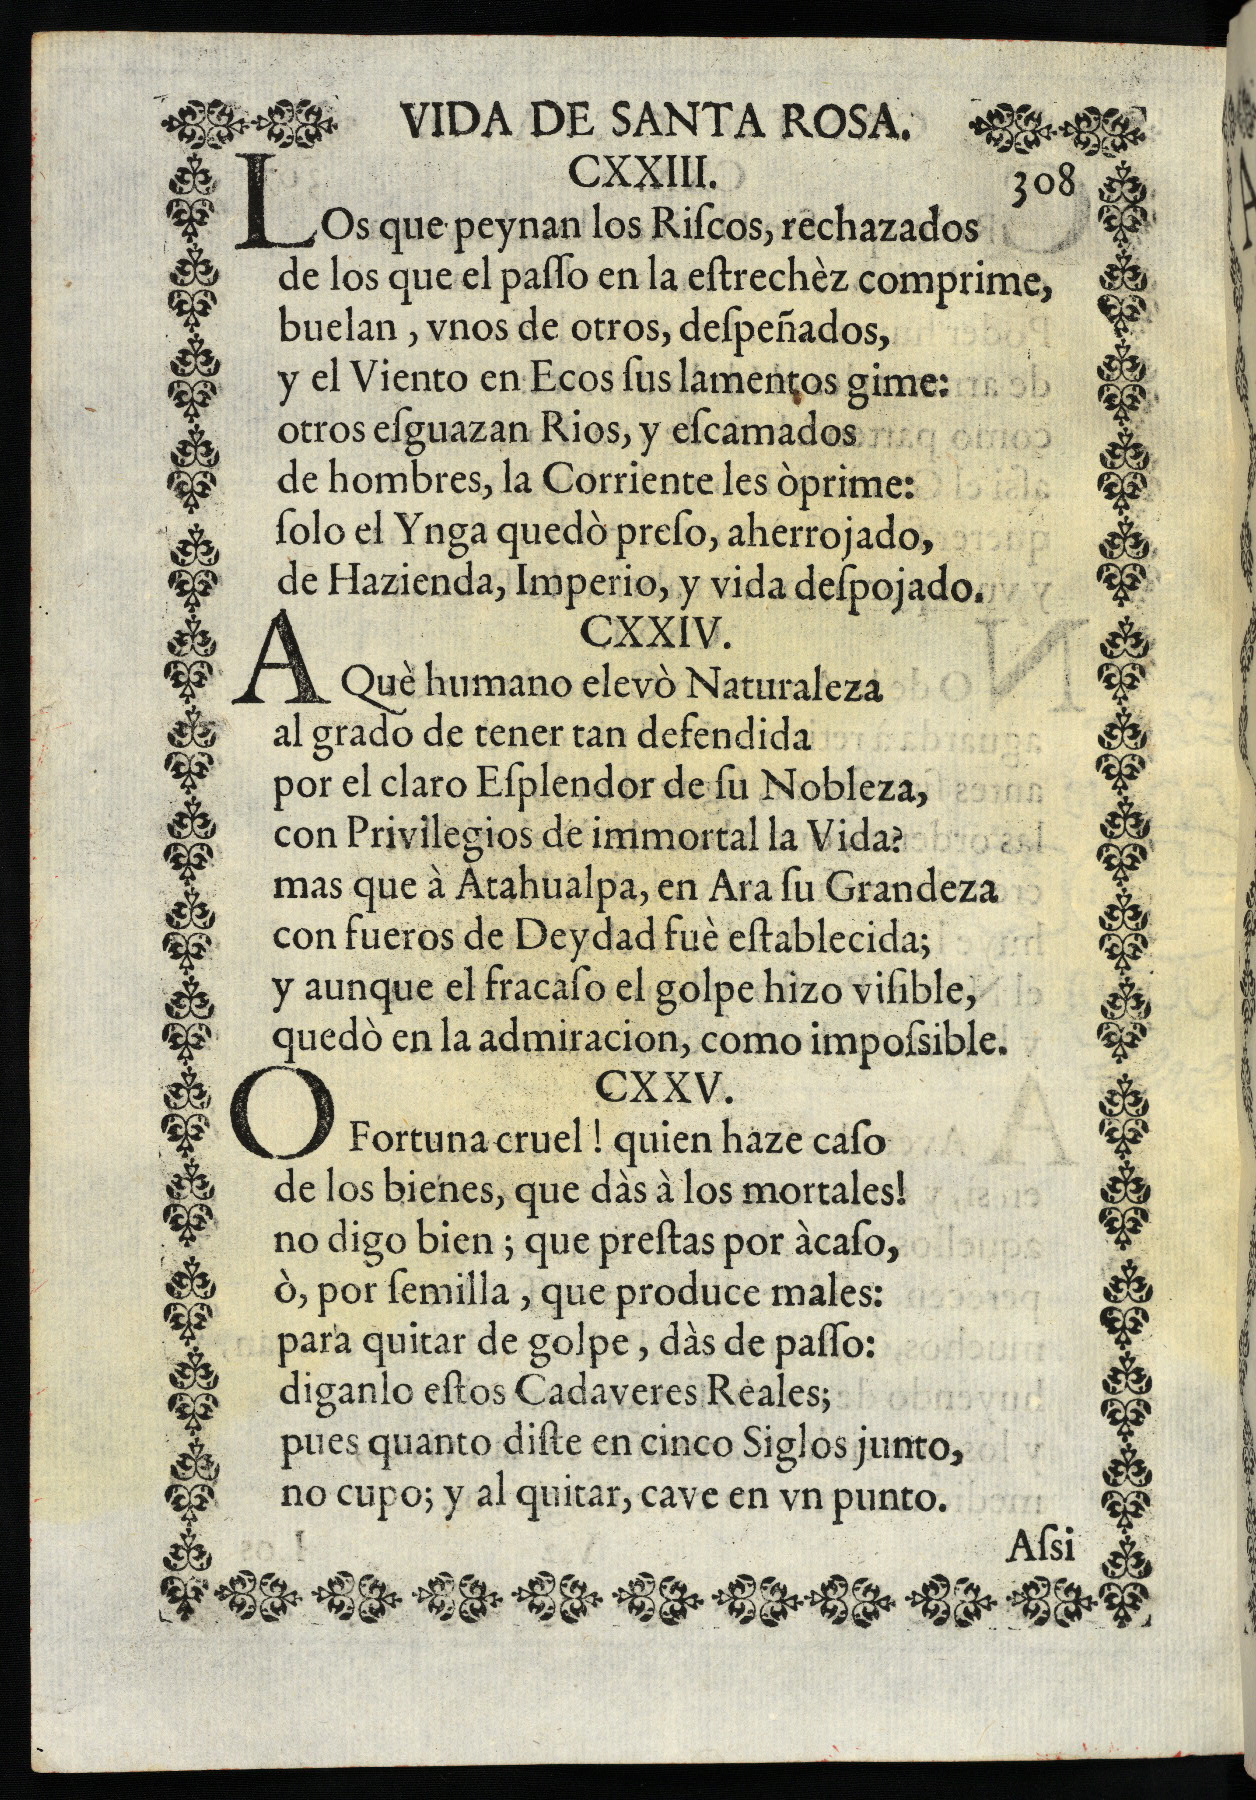 VIDA DE SANTA ROSA.
CXXIII.
308
LOs que peynan los Riſcos, rechazados
de los que el paſſo en la eſtrechèz comprime,
buelan , vnos de otros, deſpeñados,
y el Viento en Ecos ſus lamentos gime:
otros eſguazan Rios, y eſcamados
de hombres, la Corriente les òprime:
ſolo el Ynga quedò preſo, aherrojado,
de Hazienda, Imperio, y vida deſpojado.
CXXIV.
A Què humano elevò Naturaleza
al grado de tener tan defendida
por el claro Eſplendor de ſu Nobleza,
con Privilegios de immortal la Vida?
mas que à Atahualpa, en Ara ſu Grandeza
con fueros de Deydad fuè eſtablecida;
y aunque el fracaſo el golpe hizo viſible,
quedò en la admiracion, como impoſsible.
CXXV.
O Fortuna cruel ! quien haze caſo
de los bienes, que dàs à los mortales!
no digo bien ; que preſtas por àcaſo,
ò, por ſemilla , que produce males:
para quitar de golpe , dàs de paſſo:
diganlo eſtos Cadaveres Reales;
pues quanto diſte en cinco Siglos junto,
no cupo; y al quitar, cave en vn punto.
Aſsi